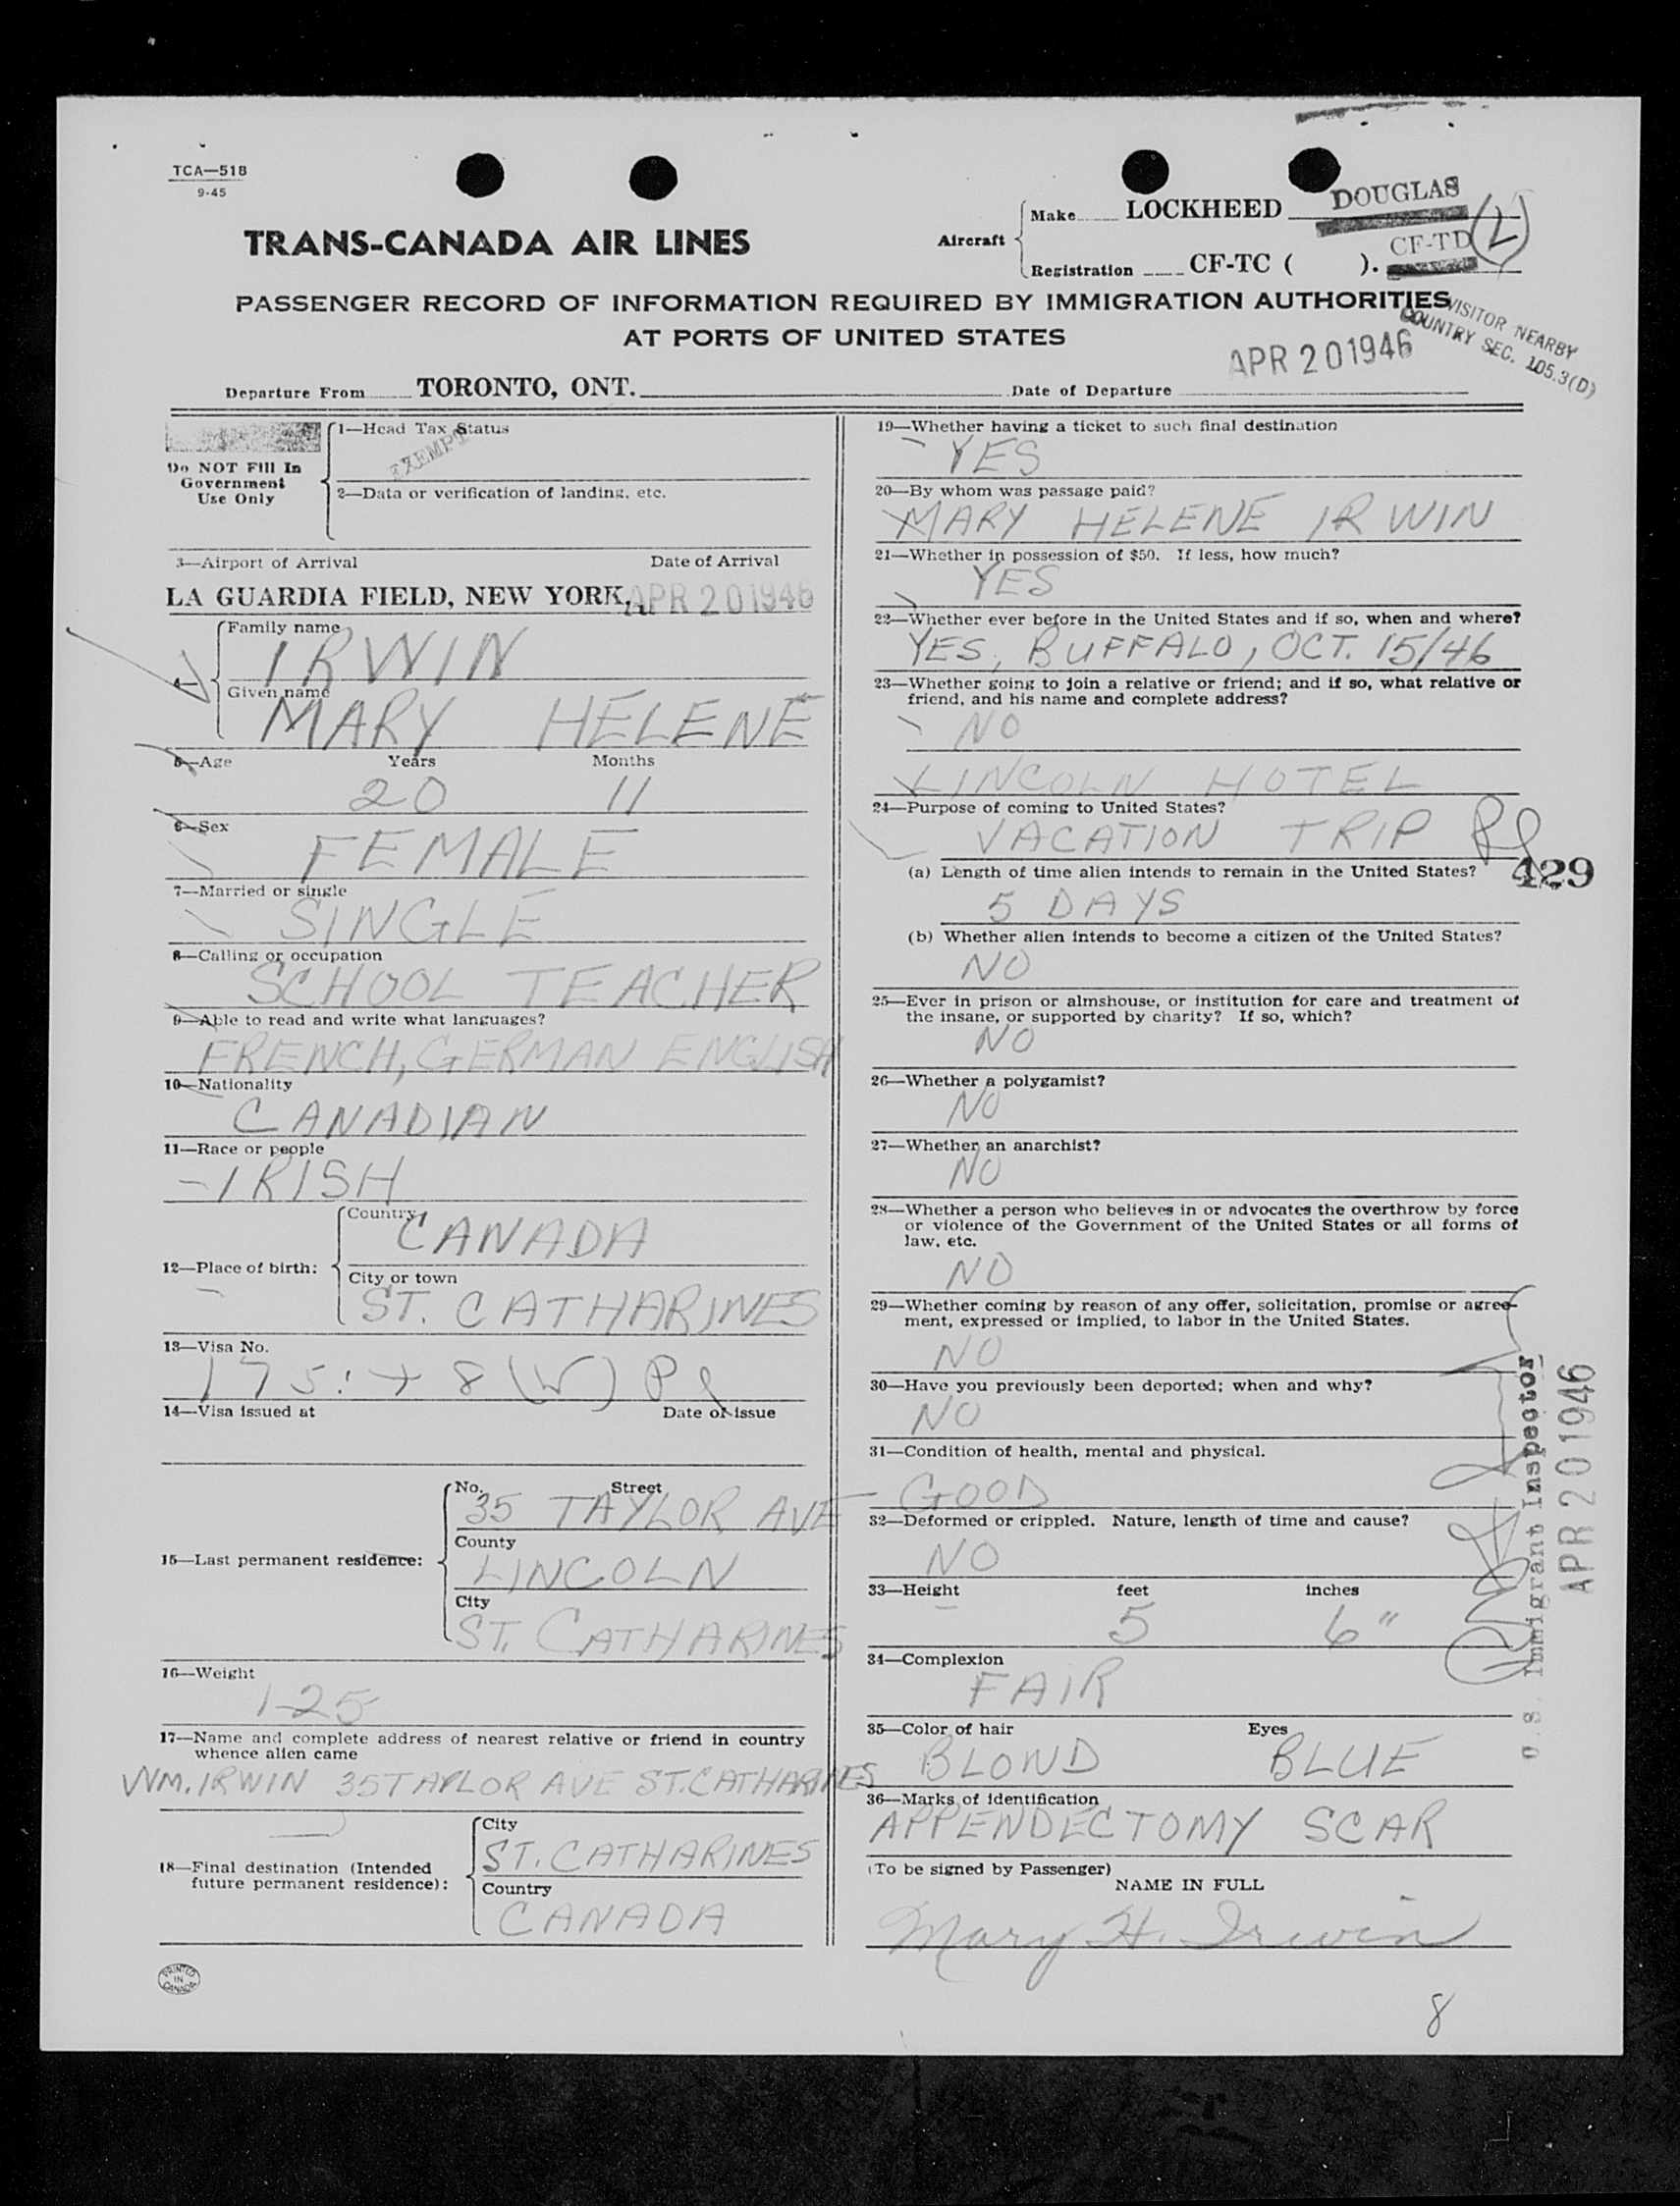 TCA—518
9-45
TRANS-CANADA AIR LINES
Aircraft
Make LOCKHEED DOUGLAS
Registration CF-TC ( ). CF-TD (L)
PASSENGER RECORD OF INFORMATION REQUIRED BY IMMIGRATION AUTHORITIES
AT PORTS OF UNITED STATES
VISITOR NEARBY
COUNTRY SEC. 105.3(D)
APR 20 1946
Departure From TORONTO, ONT. Date of Departure
Do NOT Fill In
Government
Use Only
1—Head Tax Status
EXEMPT
2—Data or verification of landing, etc.
3—Airport of Arrival Date of Arrival
LA GUARDIA FIELD, NEW YORK, APR 20 1946
4—
Family name
IRWIN
Given name
MARY HELENE
5—Age Years Months
20 11
6—Sex
FEMALE
7—Married or single
SINGLE
8—Calling or occupation
SCHOOL TEACHER
9—Able to read and write what languages?
FRENCH, GERMAN ENGLISH
10—Nationality
CANADIAN
11—Race or people
IRISH
12—Place of birth:
Country
CANADA
City or town
ST. CATHARINES
13—Visa No.
14—Visa issued at Date of issue
15—Last permanent residence:
No. Street
35 TAYLOR AVE
County
LINCOLN
City
ST. CATHARINES
16—Weight
125
17—Name and complete address of nearest relative or friend in country
whence alien came
WM. IRWIN 35 TAYLOR AVE ST. CATHARINES
18—Final destination (Intended
future permanent residence):
City
ST. CATHARINES
Country
CANADA
PRINTED
IN
CANADA
19—Whether having a ticket to such final destination
YES
20—By whom was passage paid?
MARY HELENE IRWIN
21—Whether in possession of $50. If less, how much?
YES
22—Whether ever before in the United States and if so, when and where?
YES, BUFFALO, OCT. 15/46
23—Whether going to join a relative or friend; and if so, what relative or
friend, and his name and complete address?
NO
LINCOLN HOTEL
24—Purpose of coming to United States?
VACATION TRIP
429
(a) Length of time alien intends to remain in the United States?
5 DAYS
(b) Whether alien intends to become a citizen of the United States?
NO
25—Ever in prison or almshouse, or institution for care and treatment of
the insane, or supported by charity? If so, which?
NO
26—Whether a polygamist?
NO
27—Whether an anarchist?
NO
28—Whether a person who believes in or advocates the overthrow by force
or violence of the Government of the United States or all forms of
law, etc.
NO
29—Whether coming by reason of any offer, solicitation, promise or agree-
ment, expressed or implied, to labor in the United States.
NO
30—Have you previously been deported; when and why?
NO
31—Condition of health, mental and physical.
GOOD
32—Deformed or crippled. Nature, length of time and cause?
NO
33—Height feet inches
5 6"
34—Complexion
FAIR
35—Color of hair Eyes
BLOND BLUE
36—Marks of identification
APPENDECTOMY SCAR
(To be signed by Passenger)
NAME IN FULL
Mary H. Irwin
U.S. Immigrant Inspector
APR 20 1946
8